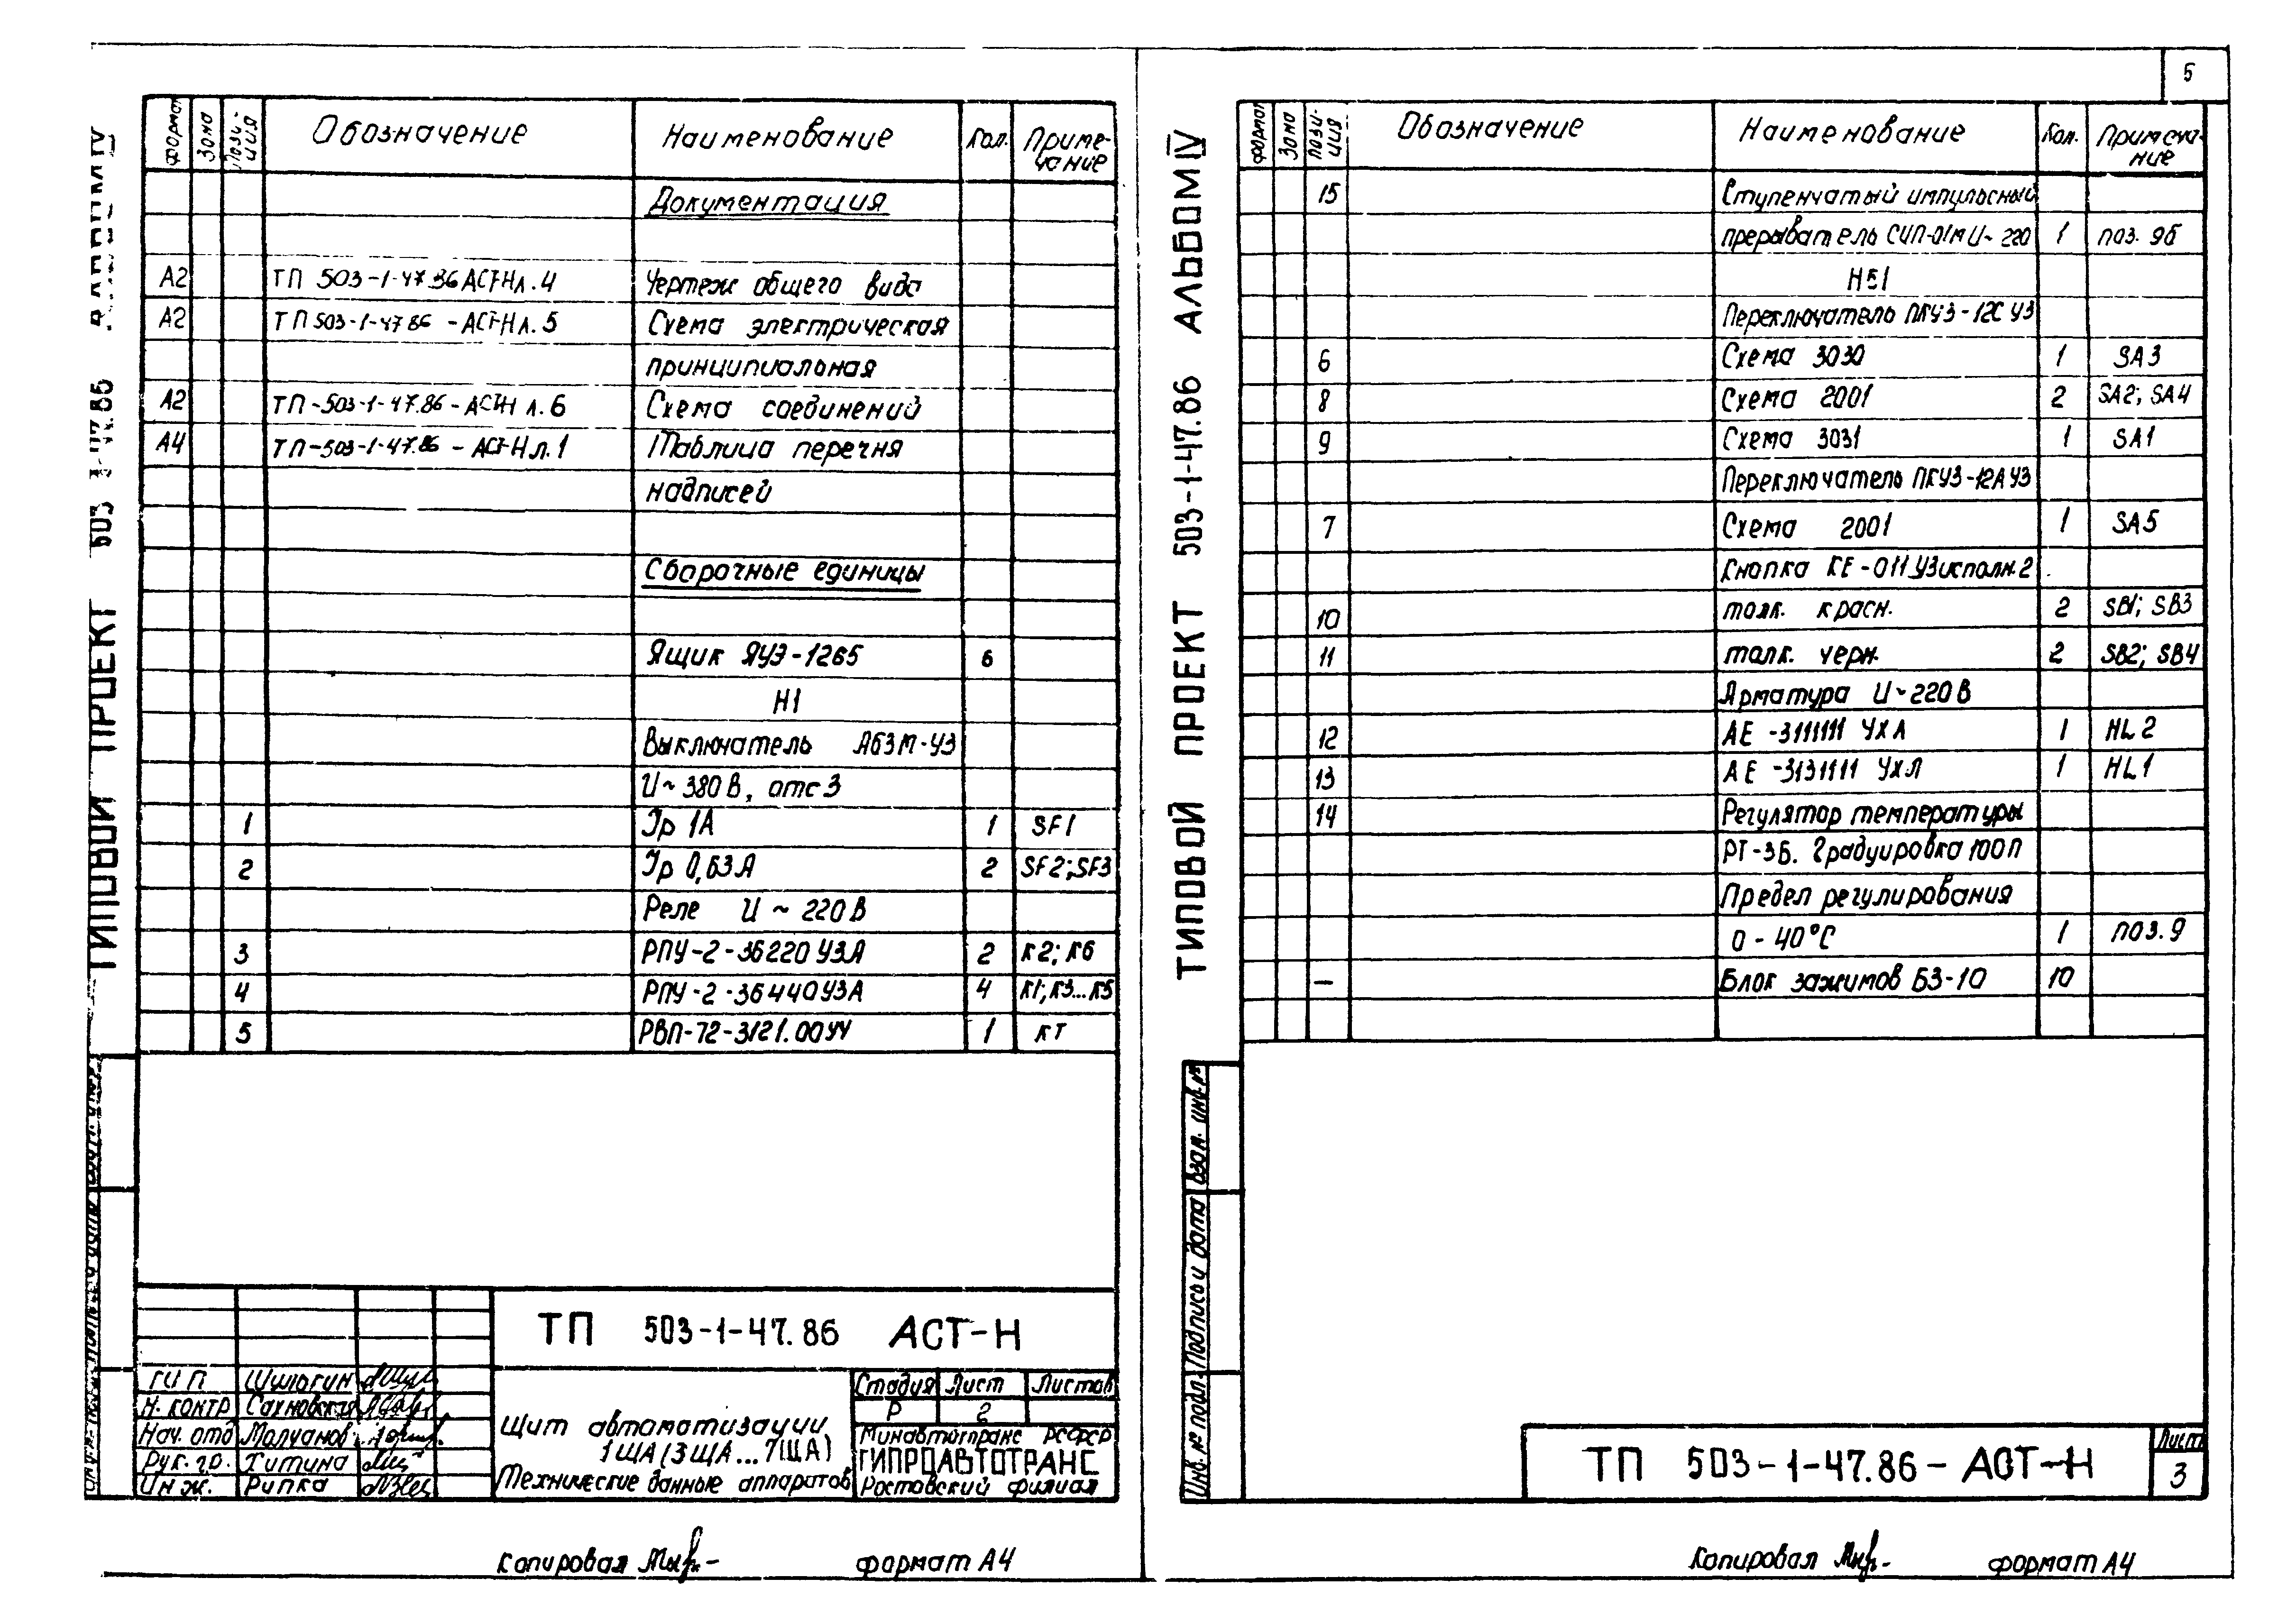 5
ТИПОВОЙ ПРОЕКТ 503-1-47.86 АЛЬБОМ IV
Формат Зона Пози-ция Обозначение Наименование Кол. Приме-чание
Документация
А2 ТП 503-1-47.86 АСТ-Н л.4 Чертеж общего вида
А2 ТП 503-1-47.86 -АСТ-Н л.5 Схема электрическая
принципиальная
А2 ТП-503-1-47.86-АСТ-Н л.6 Схема соединений
А4 ТП-503-1-47.86-АСТ-Н л.1 Таблица перечня
надписей
Сборочные единицы
Ящик ЯУЭ-1265 6
Н1
Выключатель А63М-У3
U~380В, отс 3
1 Iр 1А 1 SF1
2 Iр 0,63А 2 SF2;SF3
Реле U~220В
3 РПУ-2-36220У3А 2 К2; К6
4 РПУ-2-36440У3А 4 К1;К3...К5
5 РВП-72-3121.00УЧ 1 КТ
ТП 503-1-47.86 АСТ-Н
ГИП Шулюгин
Н. контр Сахновская
Нач. отд Молчанов
Рук. гр. Титина
Инж. Рипка
Щит автоматизации
1ЩА (3ЩА...7ЩА)
Технические данные аппаратов
Стадия Лист Листов
Р 2
Минавтотранс РСФСР
ГИПРОАВТОТРАНС
Ростовский филиал
Копировал формат А4
ТИПОВОЙ ПРОЕКТ 503-1-47.86 АЛЬБОМ IV
Формат Зона Пози-ция Обозначение Наименование Кол. Примеча-ние
15 Ступенчатый импульсный
прерыватель СИП-01М U~220 1 поз. 9б
Н51
Переключатель ПКУ3-12С У3
6 Схема 3030 1 SA3
8 Схема 2001 2 SA2; SA4
9 Схема 3031 1 SA1
Переключатель ПКУ3-12А У3
7 Схема 2001 1 SA5
Кнопка КЕ-011 У3 исполн.2
10 толк. красн. 2 SB1; SB3
11 толк. черн. 2 SB2; SB4
Арматура U~220В
12 АЕ-3111111 УХЛ 1 HL2
13 АЕ-3131111 УХЛ 1 HL1
14 Регулятор температуры
РТ-3Б. Градуировка 100П
Предел регулирования
0-40°С 1 поз.9
— Блок зажимов БЗ-10 10
Инв. № подл. Подпись и дата Взам. инв. №
ТП 503-1-47.86-АСТ-Н
Лист
3
Копировал формат А4